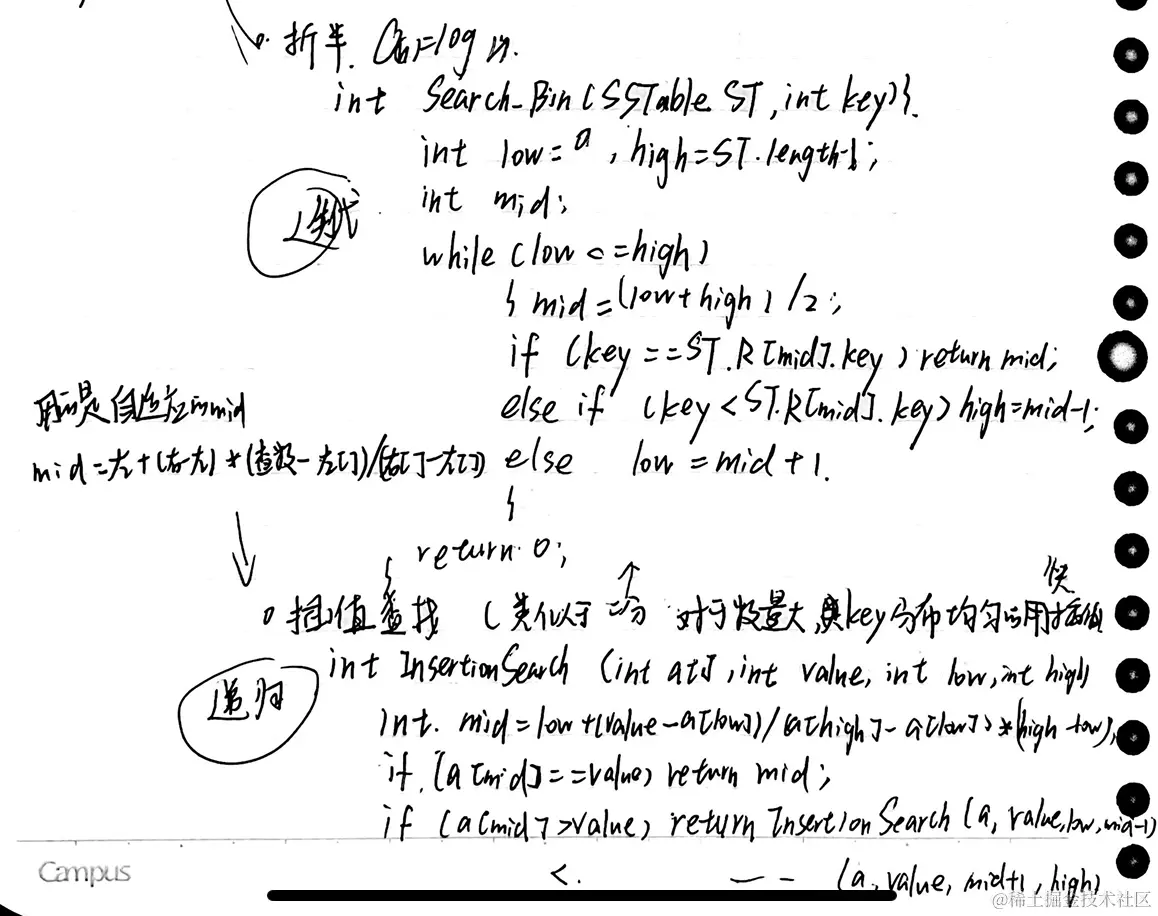 折半. O(n)=log n.
int Search_Bin(SSTable ST,int key){
int low=0,high=ST.length-1;
int mid;
迭代
while(low<=high)
{mid=(low+high)/2;
if (key==ST.R[mid].key)return mid;
else if (key<ST.R[mid].key)high=mid-1;
用的是自适应的mid
mid=左+(右-左)*(查数-左[])/(右[]-左[])
else low=mid+1.
}
return 0;
}
快
插值查找 (类似于二分 对于数量大,key分布均匀的用插值
int InsertionSearch (int a[],int value,int low,int high)
递归
int mid=low+(value-a[low])/(a[high]-a[low])*(high-low);
if (a[mid]==value)return mid;
if (a[mid]>value)return InsertionSearch(a,value,low,mid-1)
Campus
<. —— (a,value,mid+1,high)
@稀土掘金技术社区